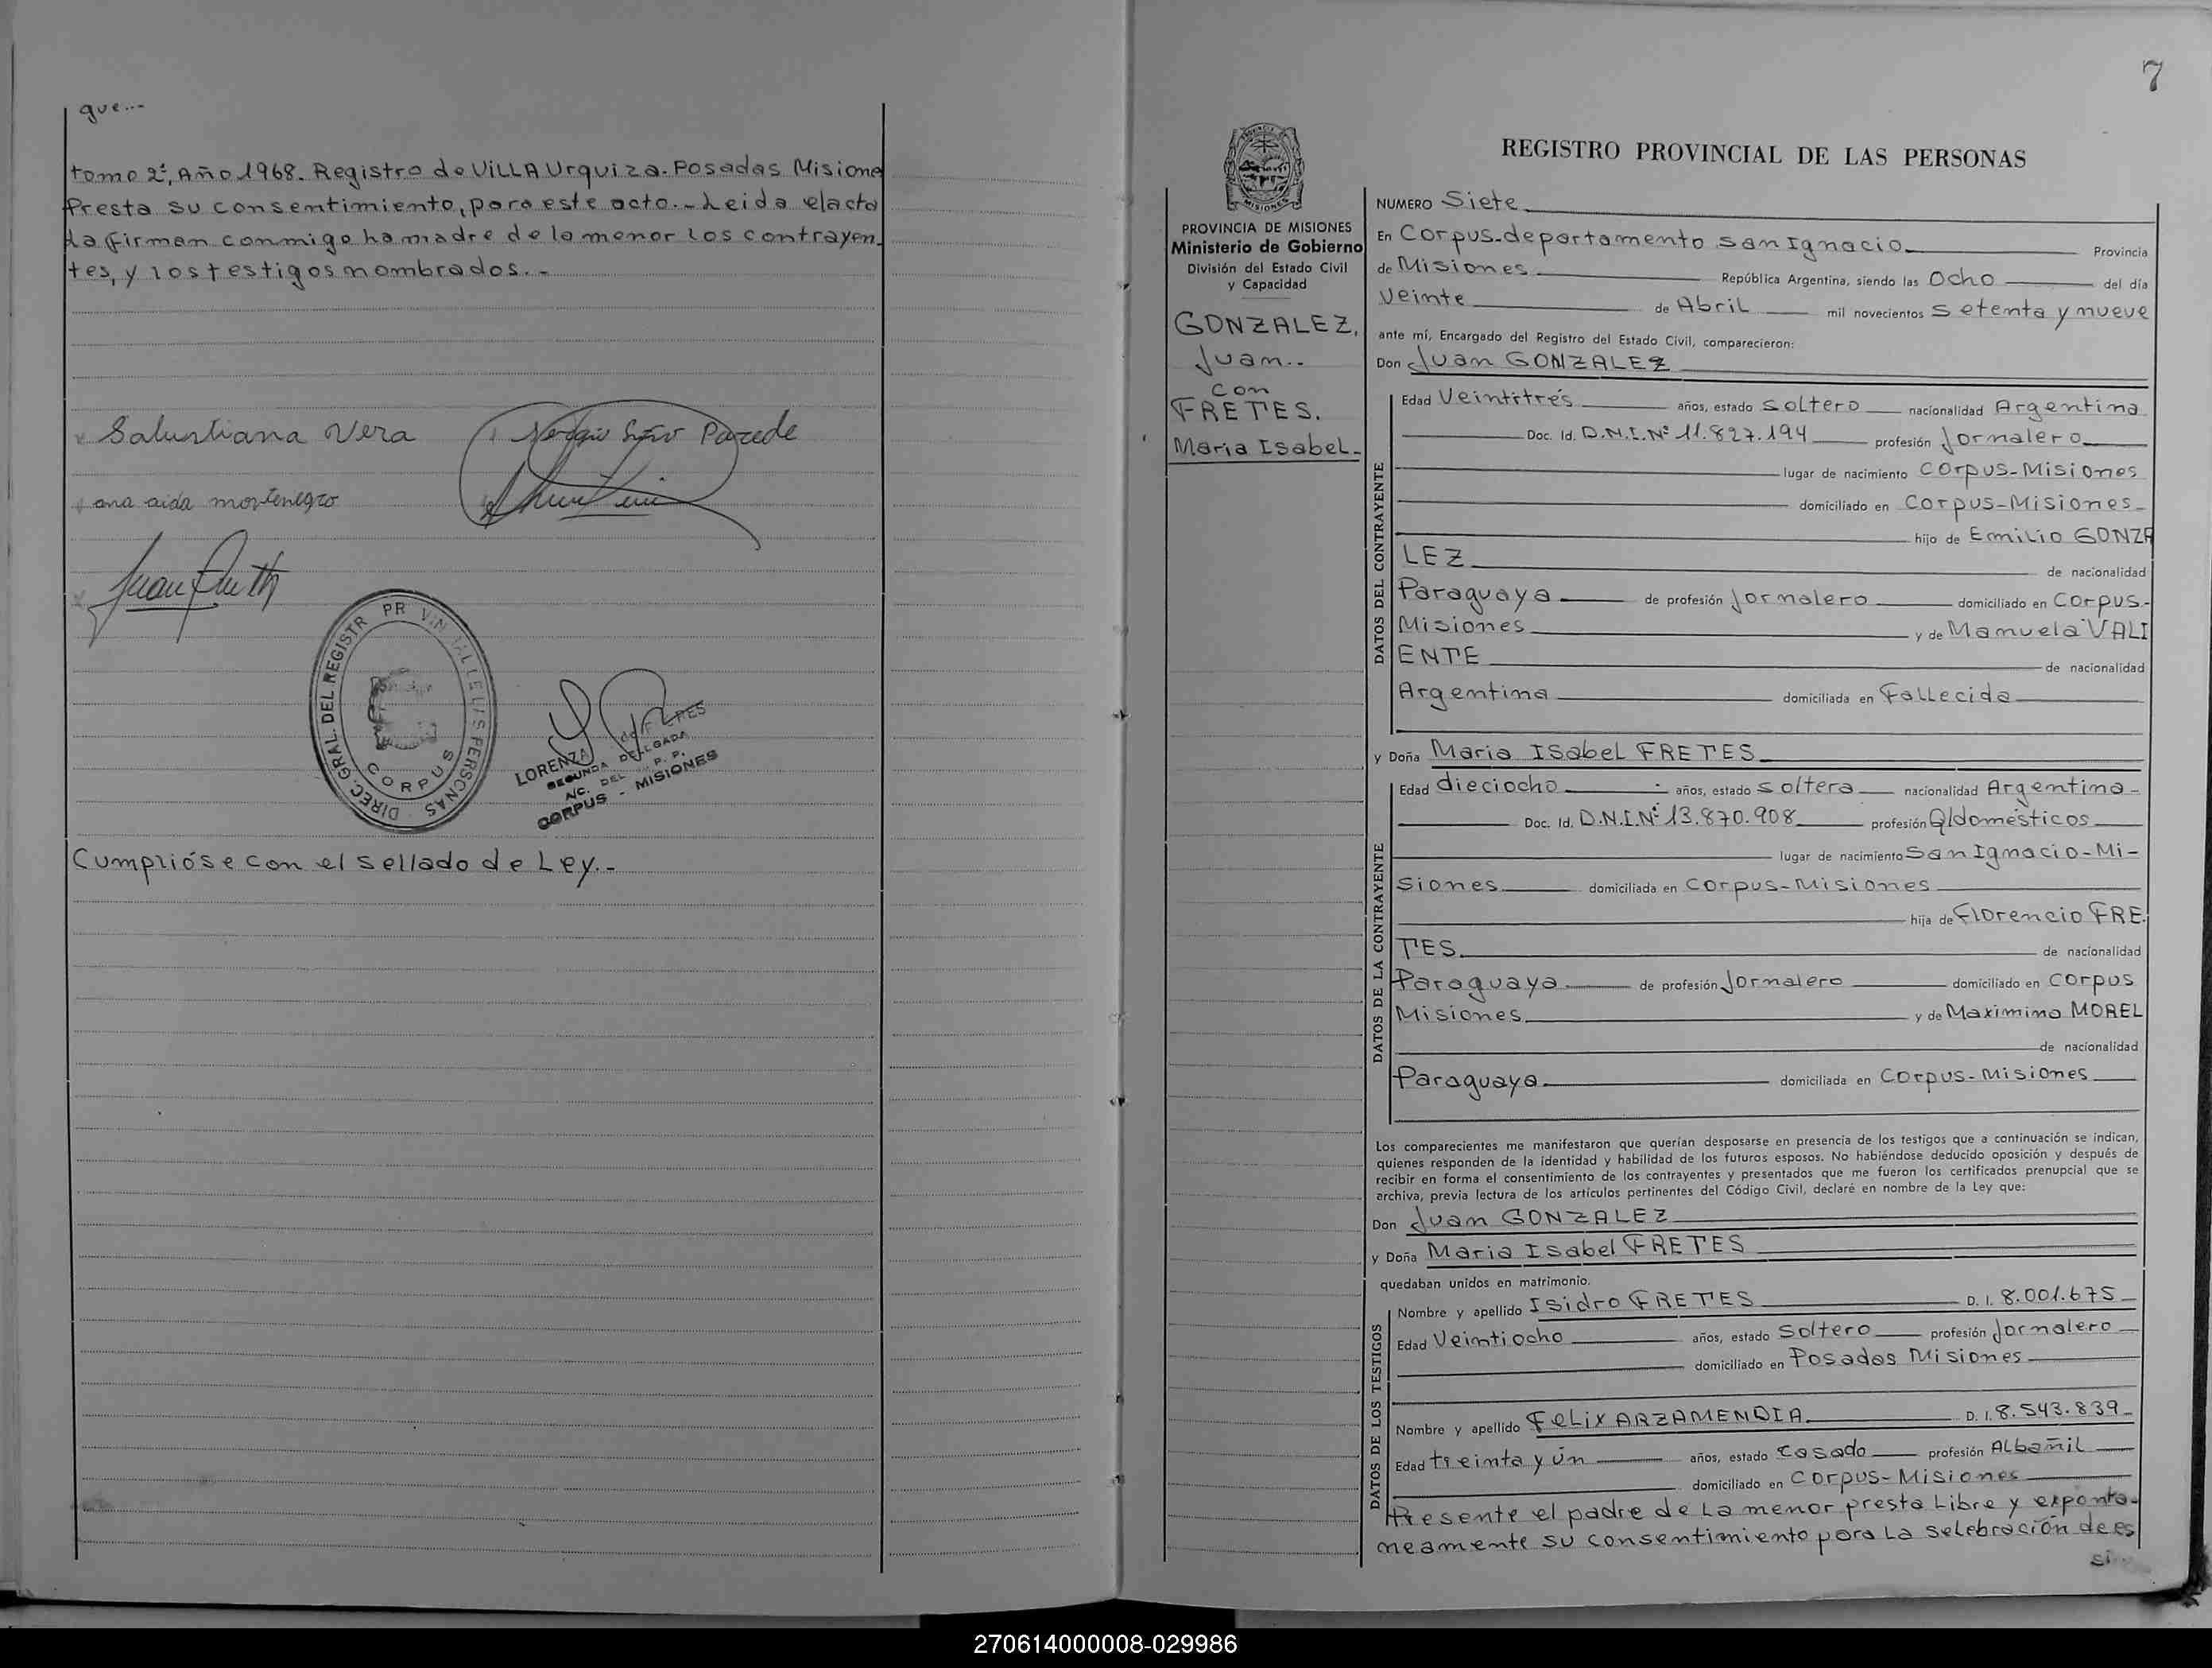 que...
tomo 2º, Año 1968. Registro de VILLA Urquiza. Posadas Misione
Presta su consentimiento, para este acto.- Leida el acta
La firman conmigo ha madre de la menor los contrayen.
tes, y los testigos nombrados. -
Salustiana Vera
Parede
ana aida montenegro
DIREC. GRAL. DEL REGISTR PR VIN IAL DE LAS PERSONAS
CORPUS
LORENZA de F
SEGUNDA DELEGADA
A/C. DEL R. P. P.
CORPUS - MISIONES
Cumplióse con el sellado de Ley. -
7
PROVINCIA DE MISIONES
Ministerio de Gobierno
División del Estado Civil
y Capacidad
GONZALEZ,
Juan..
con
FRETES.
Maria Isabel-
REGISTRO PROVINCIAL DE LAS PERSONAS
NUMERO Siete
En Corpus-departamento san Ignacio Provincia
de Misiones República Argentina, siendo las Ocho del día
Veinte de Abril mil novecientos setenta y nueve
ante mí, Encargado del Registro del Estado Civil, comparecieron:
Don Juan GONZALEZ
DATOS DEL CONTRAYENTE
Edad Veintitrés años, estado soltero nacionalidad Argentina
Doc. Id. D.N.I.Nº 11.827.194 profesión Jornalero
lugar de nacimiento Corpus-Misiones
domiciliado en Corpus-Misiones-
hijo de Emilio GONZA
LEZ de nacionalidad
Paraguaya de profesión Jornalero domiciliado en Corpus-
Misiones y de Manuela VALI
ENTE de nacionalidad
Argentina domiciliada en Fallecida
y Doña Maria Isabel FRETES
DATOS DE LA CONTRAYENTE
Edad dieciocho años, estado soltera nacionalidad Argentina-
Doc. Id. D.N.I.Nº 13.870.908 profesión Q/domésticos
lugar de nacimiento San Ignacio-Mi-
siones domiciliada en Corpus-Misiones
hija de Florencio FRE.
TES de nacionalidad
Paraguaya de profesión Jornalero domiciliado en Corpus
Misiones y de Maximina MOREL
de nacionalidad
Paraguaya domiciliada en Corpus-Misiones
Los comparecientes me manifestaron que querían desposarse en presencia de los testigos que a continuación se indican,
quienes responden de la identidad y habilidad de los futuros esposos. No habiéndose deducido oposición y después de
recibir en forma el consentimiento de los contrayentes y presentados que me fueron los certificados prenupcial que se
archiva, previa lectura de los artículos pertinentes del Código Civil, declaré en nombre de la Ley que:
Don Juan GONZALEZ
y Doña Maria Isabel FRETES
quedaban unidos en matrimonio.
DATOS DE LOS TESTIGOS
Nombre y apellido Isidro FRETES D. I. 8.001.675
Edad Veintiocho años, estado Soltero profesión Jornalero
domiciliado en Posadas Misiones
Nombre y apellido Felix ARZAMENDIA D. I. 8.543.839
Edad treinta y ún años, estado casado profesión Albañil
domiciliado en Corpus-Misiones
Presente el padre de La menor presta Libre y exponta-
neamente su consentimiento para La selebración de es
si...
270614000008-029986